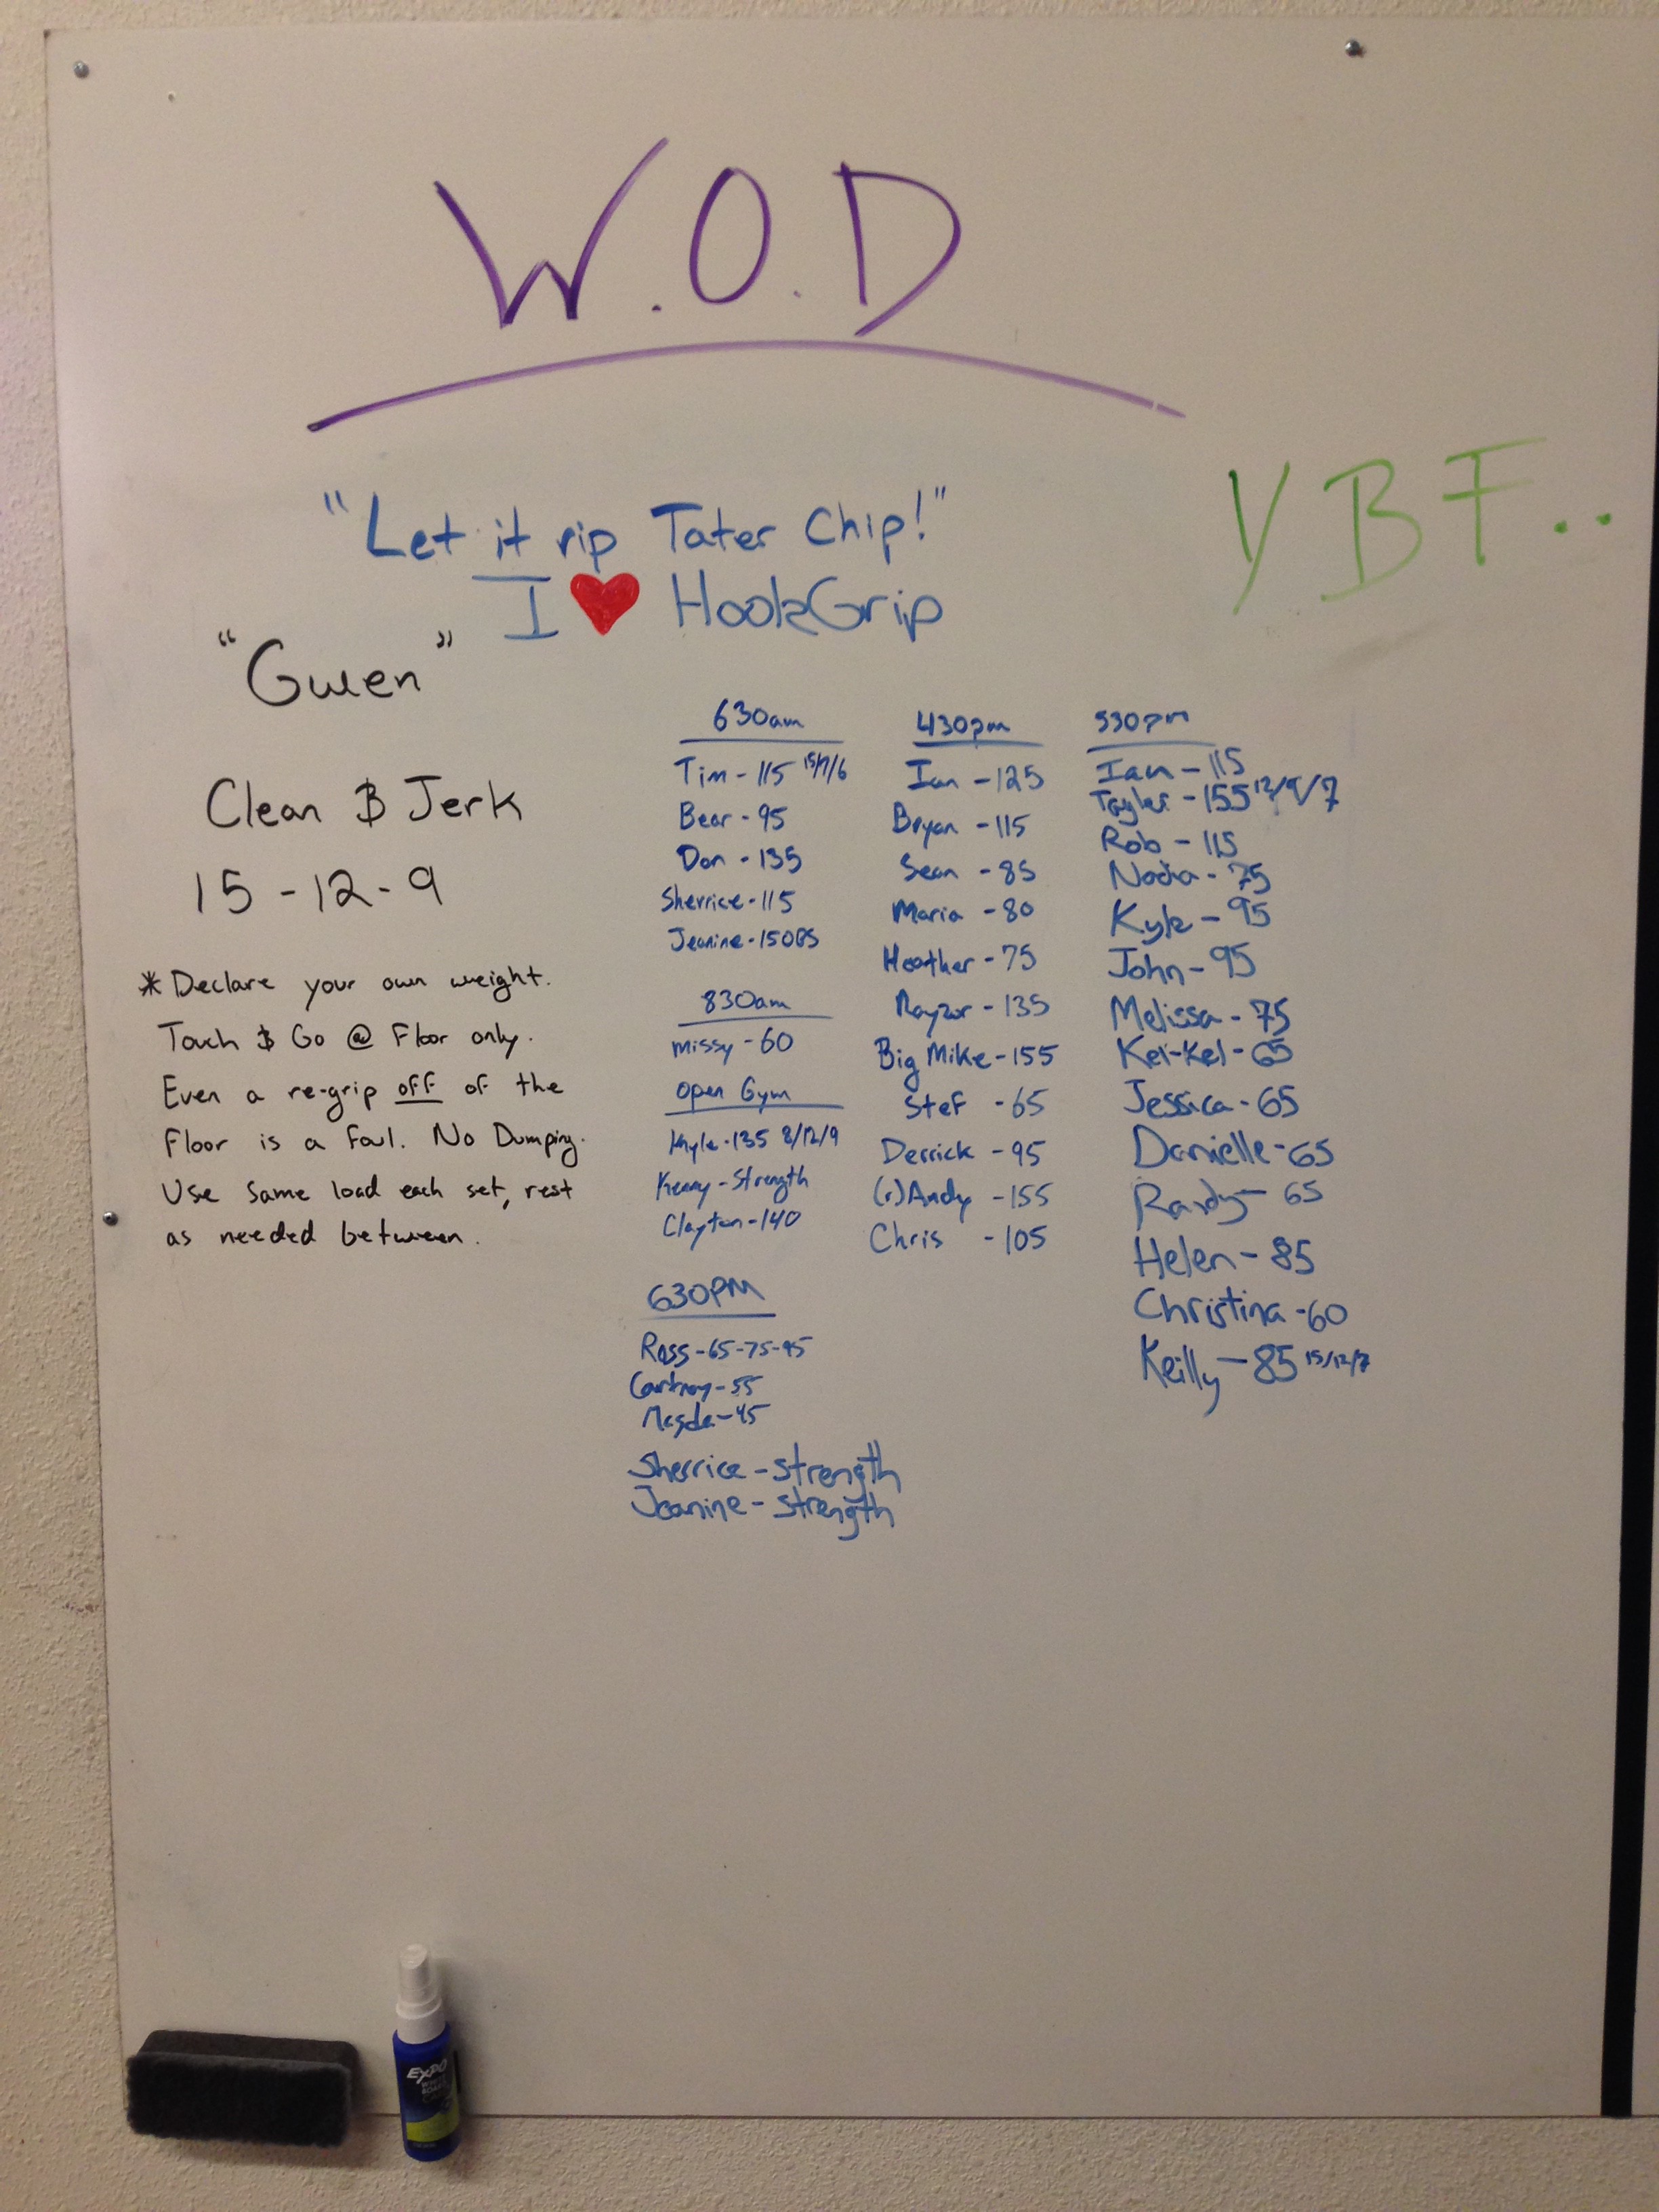 W.O.D
"Let it rip Tater Chip!"
I ♥ HookGrip
YBF..
"Gwen"
Clean & Jerk
15-12-9
* Declare your own weight.
Touch & Go @ Floor only.
Even a re-grip off of the
Floor is a foul. No Dumping.
Use same load each set, rest
as needed between.
630am
Tim - 115
Bear - 95
Don - 135
Sherrice - 115
Jeanine - 150BS
830am
Missy - 60
Open Gym
Kyle - 135 8/12/9
Kenny - Strength
Clayton - 140
630PM
Ross - 65-75-95
Cortney - 55
Magda - 45
Sherrice - strength
Jeanine - strength
430pm
Ian - 125
Bryan - 115
Sean - 85
Maria - 80
Heather - 75
Rayzor - 135
Big Mike - 155
Stef - 65
Derrick - 95
(r)Andy - 155
Chris - 105
530pm
Ian - 115
Taylor - 155 12/9/7
Rob - 115
Nadia - 75
Kyle - 95
John - 95
Melissa - 75
Kel-Kel - 65
Jessica - 65
Danielle - 65
Randy - 65
Helen - 85
Christina - 60
Keilly - 85 15/12/7
EXPO